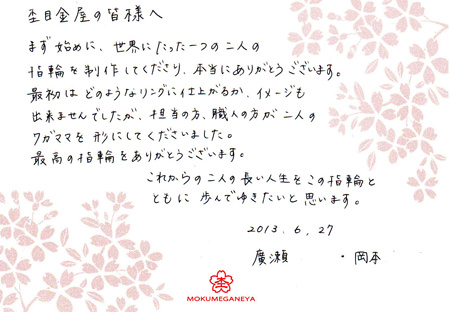 杢目金屋の皆様へ
まず始めに、世界にたった一つの二人の
指輪を制作してくださり、本当にありがとうございます。
最初はどのようなリングに仕上がるか、イメージも
出来ませんでしたが、担当の方、職人の方が二人の
ワガママを形にしてくださいました。
最高の指輪をありがとうございます。
これからの二人の長い人生をこの指輪と
ともに歩んでゆきたいと思います。
2013.6.27
廣瀬 ・岡本
MOKUMEGANEYA